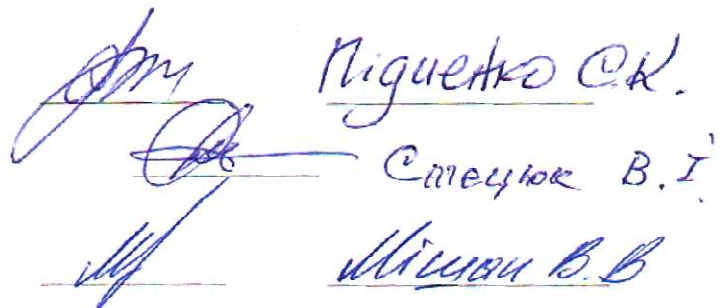 Підченко С.К.
Стецюк В.І.
Мішан В.В